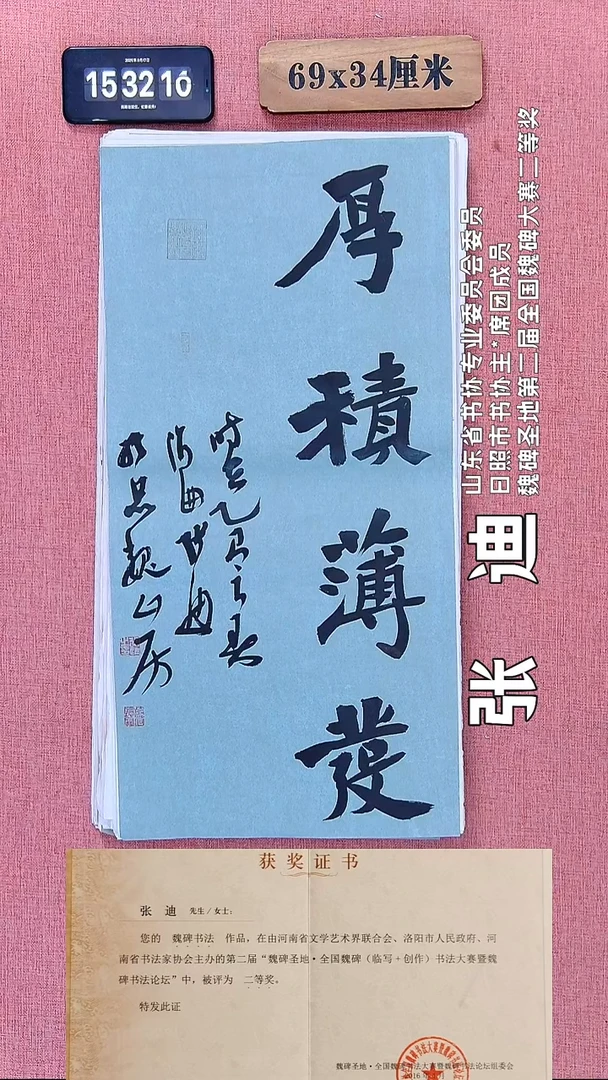 15 32 10
69x34厘米
厚積薄發
时在乙巳之春
张迪
山东省书协专业委员会委员
日照市书协主*席团成员
魏碑圣地第二届全国魏碑大赛二等奖
张 迪
获奖证书
张 迪 先生/女士:
您的 魏碑书法 作品，在由河南省文学艺术界联合会、洛阳市人民政府、河
南省书法家协会主办的第二届“魏碑圣地·全国魏碑（临写+创作）书法大赛暨魏
碑书法论坛”中，被评为 二等奖。
特发此证
魏碑圣地·全国魏碑书法大赛暨魏碑书法论坛组委会